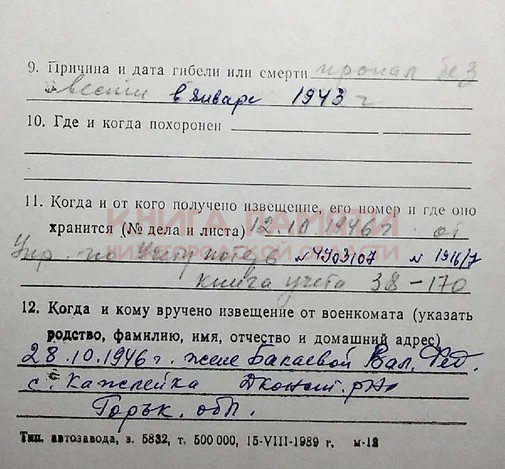 9. Причина и дата гибели или смерти пропал без
вести в январе 1943 г
10. Где и когда похоронен
11. Когда и от кого получено извещение, его номера и где оно
хранится (№ дела и листа) 12.10.1946 г. от
Упр. по учету потерь N 4903107 N 1916/7
книга учета 38-170
12. Когда и кому вручено извещение от военкомата (указать
родство, фамилию, имя, отчество и домашний адрес)
28.10.1946 г. жене Бакаевой Вал. Фед.
с. Кажлейка
Горьк. обл.
КНИГА ПАМЯТИ
НИЖЕГОРОДСКОЙ ОБЛАСТИ
Тип. автозавода, з. 5832, т. 500 000, 15-VIII-1989 г. м-12